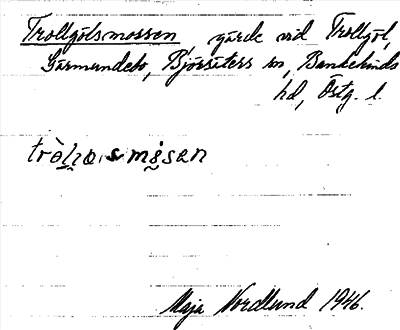 Trollgölsmossen, gärde vid Trollgöl,
Gärmundebo, Björsäters sn, Bankekinds
hd, Östg. l.
Maja Nordlund 1946.